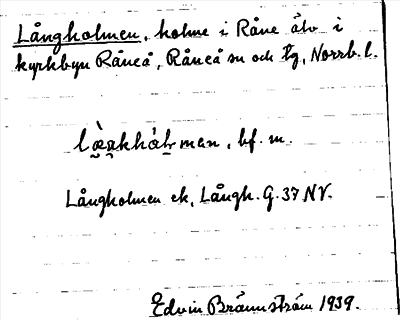 Långholmen, holme i Råne älv i
kyrkbyn Råneå, Råneå sn och tg, Norrb. l.
men, bf. m.
Långholmen ek, Långh. G. 37 NV.
Edvin Brännström 1939.